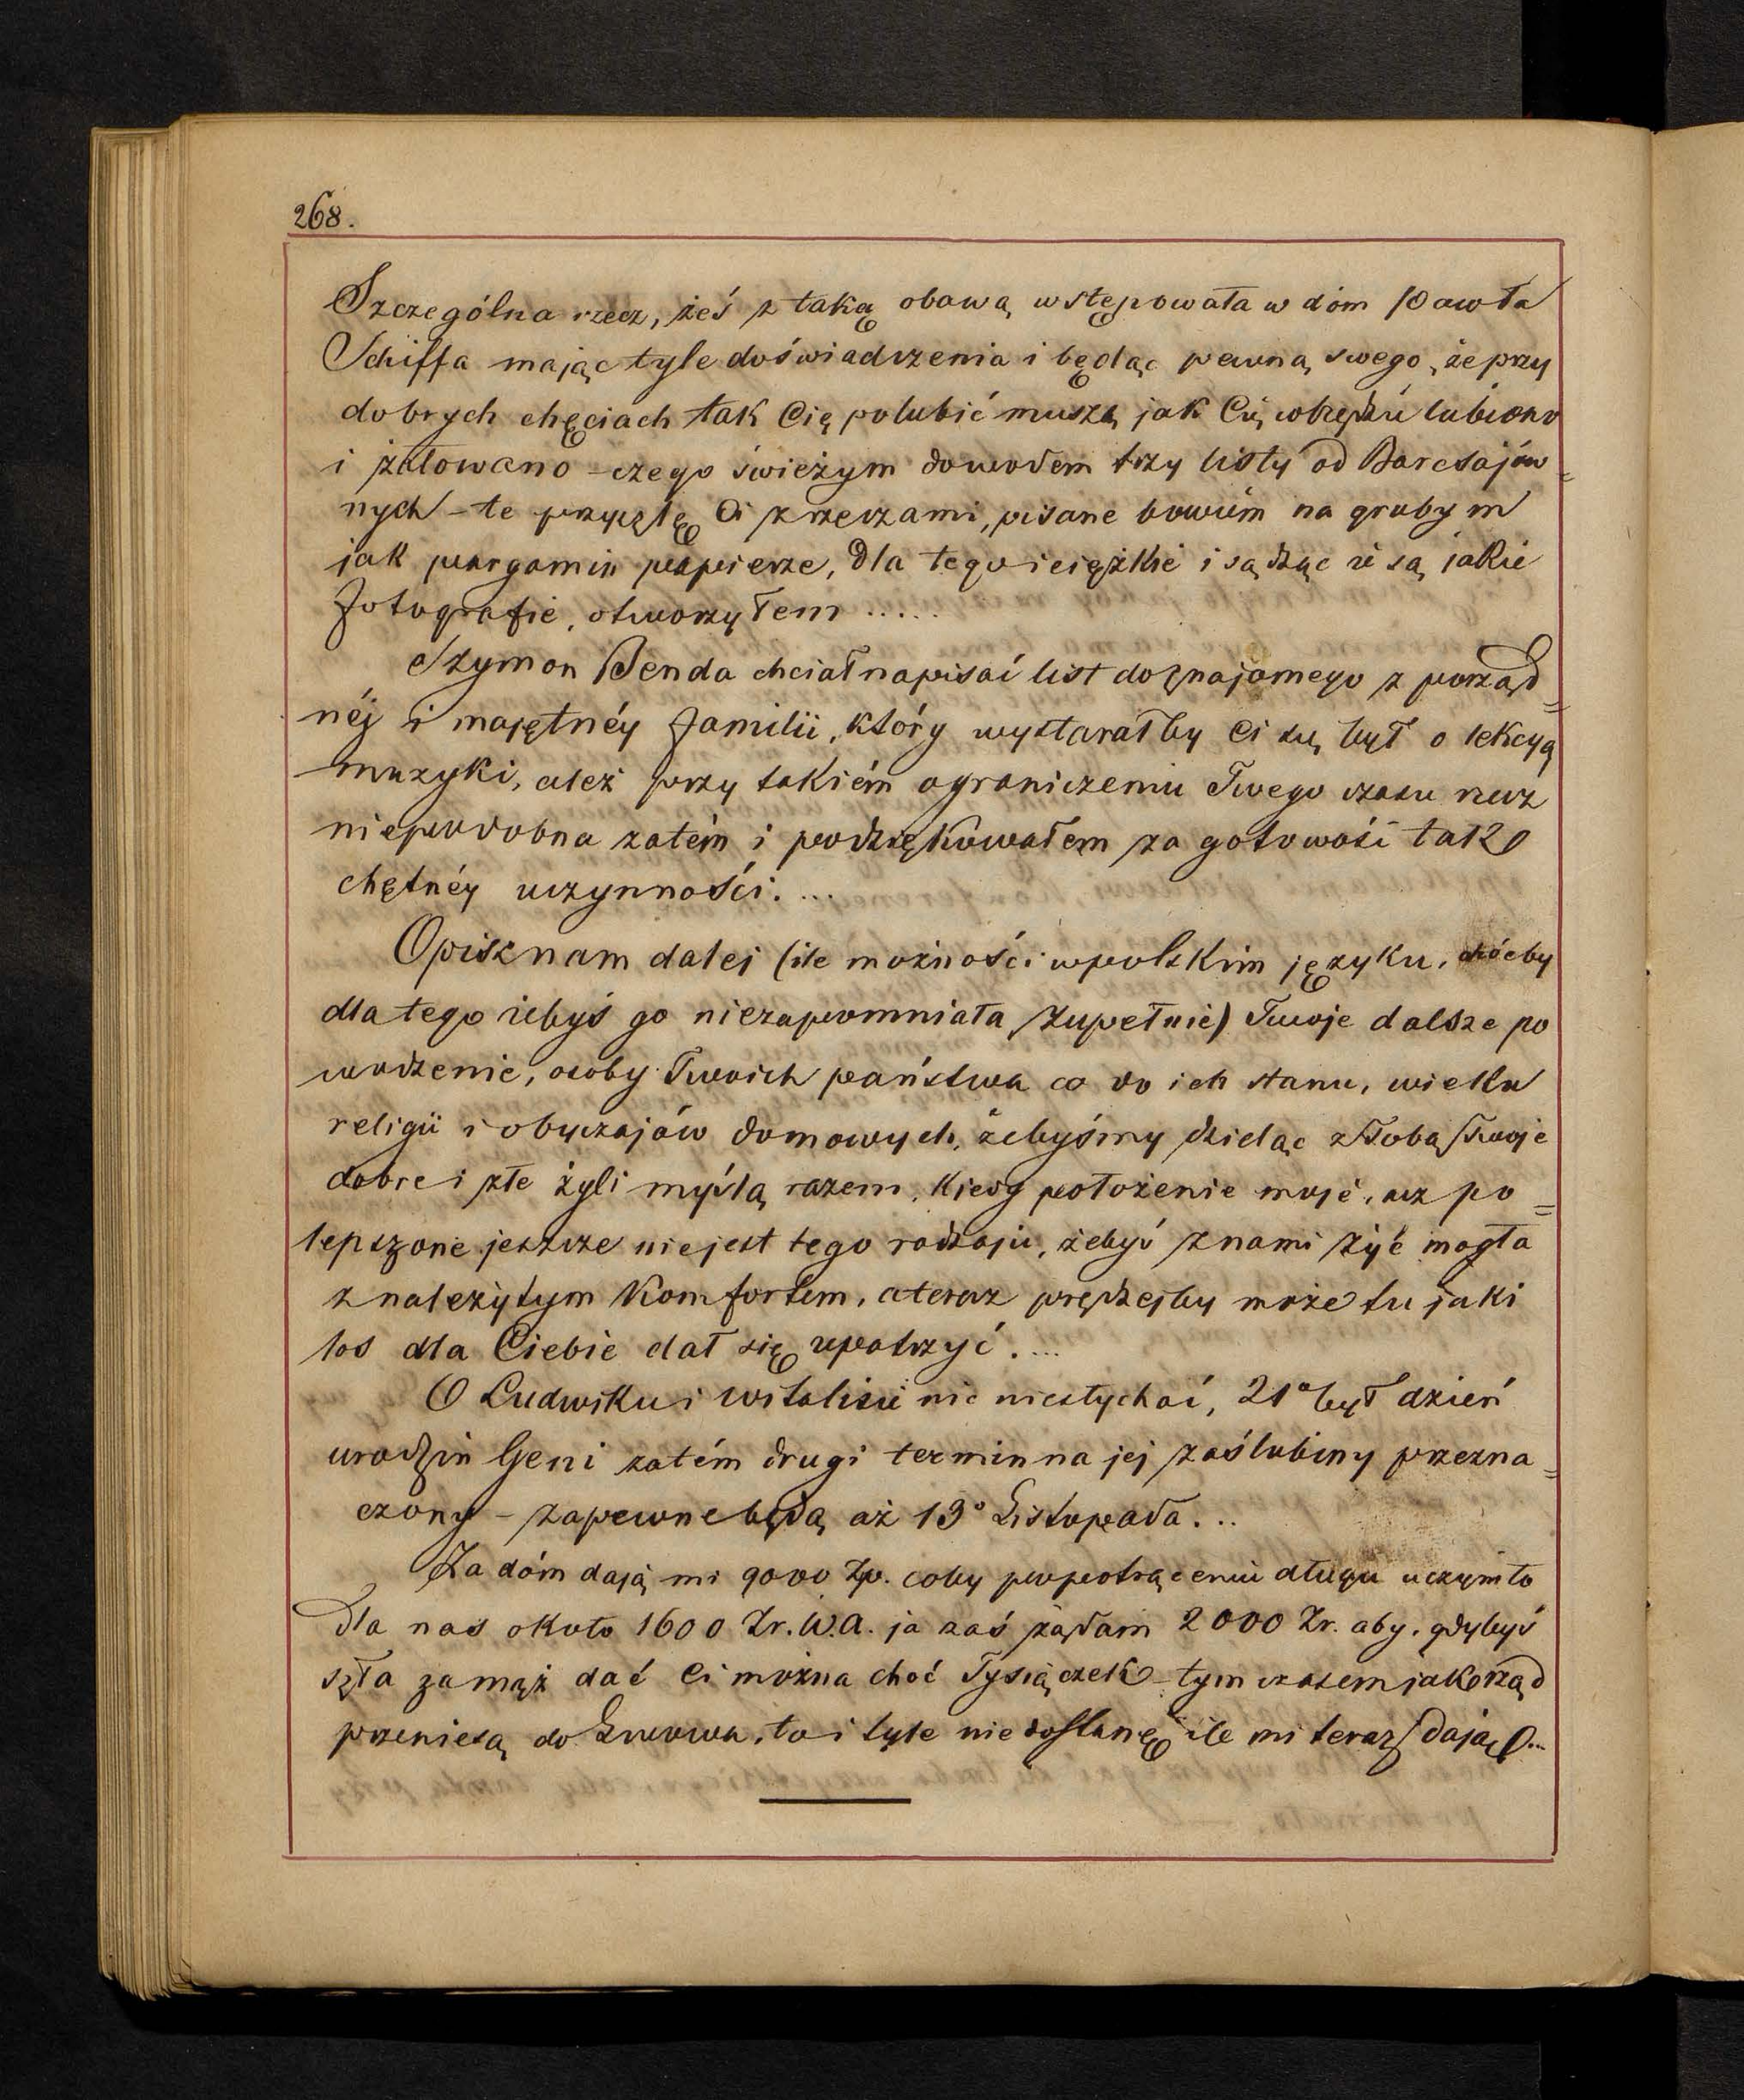 268.
Szczególna rzecz, żeś z taką obawą wstępowała w dóm Pawła
Schiffa mając tyle doświadczenia i będąc pewną swego, że przy
dobrych chęciach tak Cię polubić muszą jak Cię wszędzie lubiono
i żałowano – czego świeżym dowodem trzy listy od Barcsajów=
nych – te przyszlę Ci z rzeczami, pisane bowiém na grubym
jak pargamin papierze, dla tego i ciężkie i sądząc że są jakie
fotografie, otworzyłem .....
Szymon Benda chciał napisać list do znajomego z porząd=
néj i majętnéy familii, który wystarałby Ci się był o lekcyą
muzyki, aleź przy takiém ograniczeniu Twego czasu rzecz
niepodobna zatém i podziękowałem za gotowość tak
chętnéy uczynności. ...
Opisz nam dalej (ile możności w polskim języku, chóćby
dla tego żebyś go niezapomniała zupełnie) Twoje dalsze po
wodzenie, osoby Twoich państwa co do ich stanu, wieku
religii i obyczajów domowych, żebyśmy dzieląc z Tobą Twoje
dobre i złe żyli myślą razem, kiedy położenie moje, acz po=
lepszone jeszcze niejest tego rodzaju, żebyś z nami żyć mogła
z należytym komfortem, a teraz prędzejby może tu jaki
los dla Ciebie dał się upatrzyć. ...
O Ludwiku i Witalisie nic niesłychać, 21º był dzień
urodzin Geni zatém drugi termin na jej zaślubiny przezna=
czony – zapewne będą aż 19º Listopada. ..
Za dóm dają mi 9000 Zp. coby po potrąceniu długu uczyniło
dla nas około 1600 Zr. W.A. ja zaś żądam 2000 Zr. aby, gdybyś
szła zamąż dać Ci można choć Tysiączek – tym czasem jak rząd
przeniesą do Lwowa, to i tyle niedostanę ile mi teraz dają ...